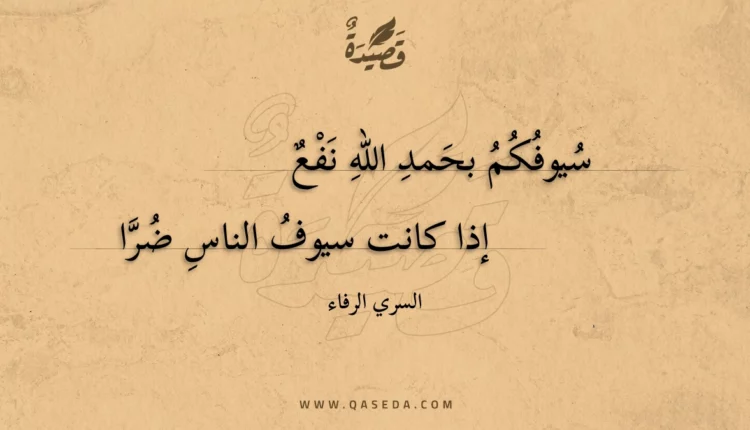 قَصِيْدَةٌ
سُيوفُكُمُ بحَمدِ اللهِ نَفْعٌ
إذا كانت سيوفُ الناسِ ضُرَّا
السري الرفاء
WWW.QASEDA.COM